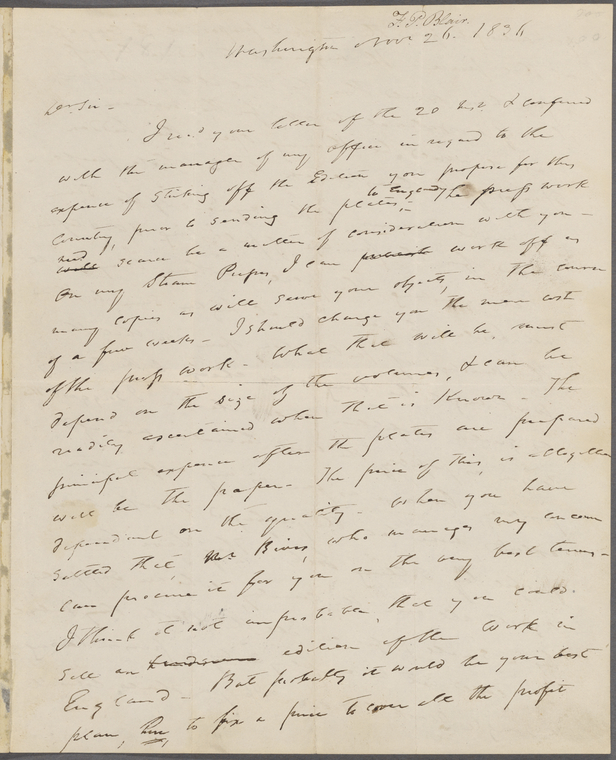 F. P. Blair.
Washington Nov 26. 1836
Dr Sir -
I recd your letter of the 20 inst. & conferred
with the manager of my office in regard to the
expense of striking off the Edition you propose for this
Country, prior to sending the plates, to England. The press work
need scarce be a matter of consideration with you -
On my Steam Press, I can work off as
many copies as will serve your object, in the course
of a few weeks - I should charge you the mere cost
of the press work - What that will be, must
depend on the size of the volumes, & can be
readily ascertained when that is known - The
principal expense after the plates are prepared
will be the paper - The price of this, is altogether
dependent on the quality - When you have
settled that, Mr Rives, who manages my concern
can procure it for you on the very best terms -
I think it not improbable, that you could
sell an edition of the work in
England - But probably it would be your best
plan, here, to fix a price to cover all the profit